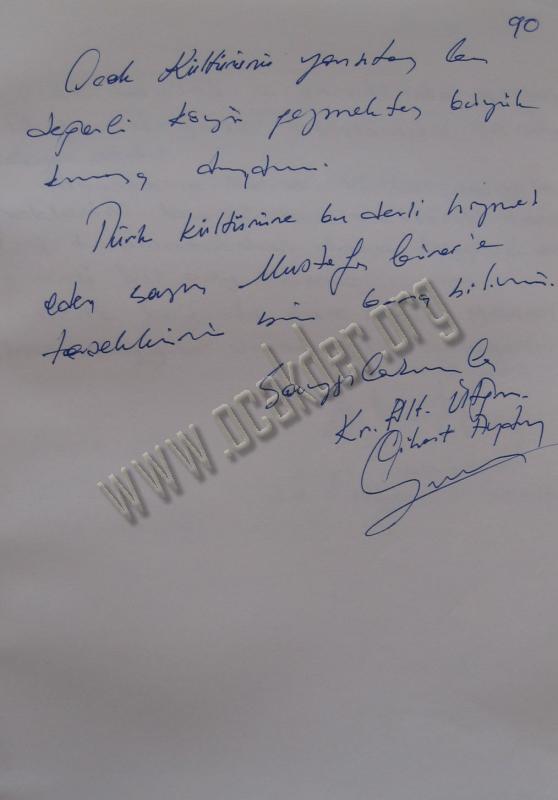 90
Ocak Kültürünü yansıtan bu
değerli köyü gezmekten büyük
duydum.
Türk kültürüne bu denli hizmet
eden sayın Mustafa Güner'e
teşekkürü bir borç bilirim.
Saygılarımla
Kr. Plt. Ütğm.
Cihat
www.ocakder.org